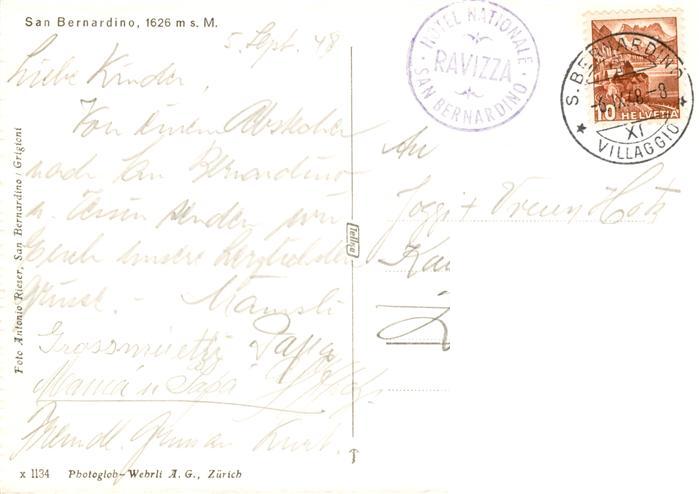 San Bernardino, 1626 m s. M.
5. Sept. 48
Liebe Kinder,
Von einem Abstecher
nach San Bernardino
u. Tessin senden wir
Euch unsere herzlichsten
Grüsse. - Mamsli
Grossmuetti Papa
Mama u Papa
Freundl. Kurt
Foto Antonio Rieser, San Bernardino / Grigioni
x 1134 Photoglob-Wehrli A. G., Zürich
HOTEL NATIONALE
RAVIZZA
SAN BERNARDINO
S. BERNARDINO
-6.IX.48.-8
XI
VILLAGGIO
10 HELVETIA
An
Joggi + Vreny Hotz